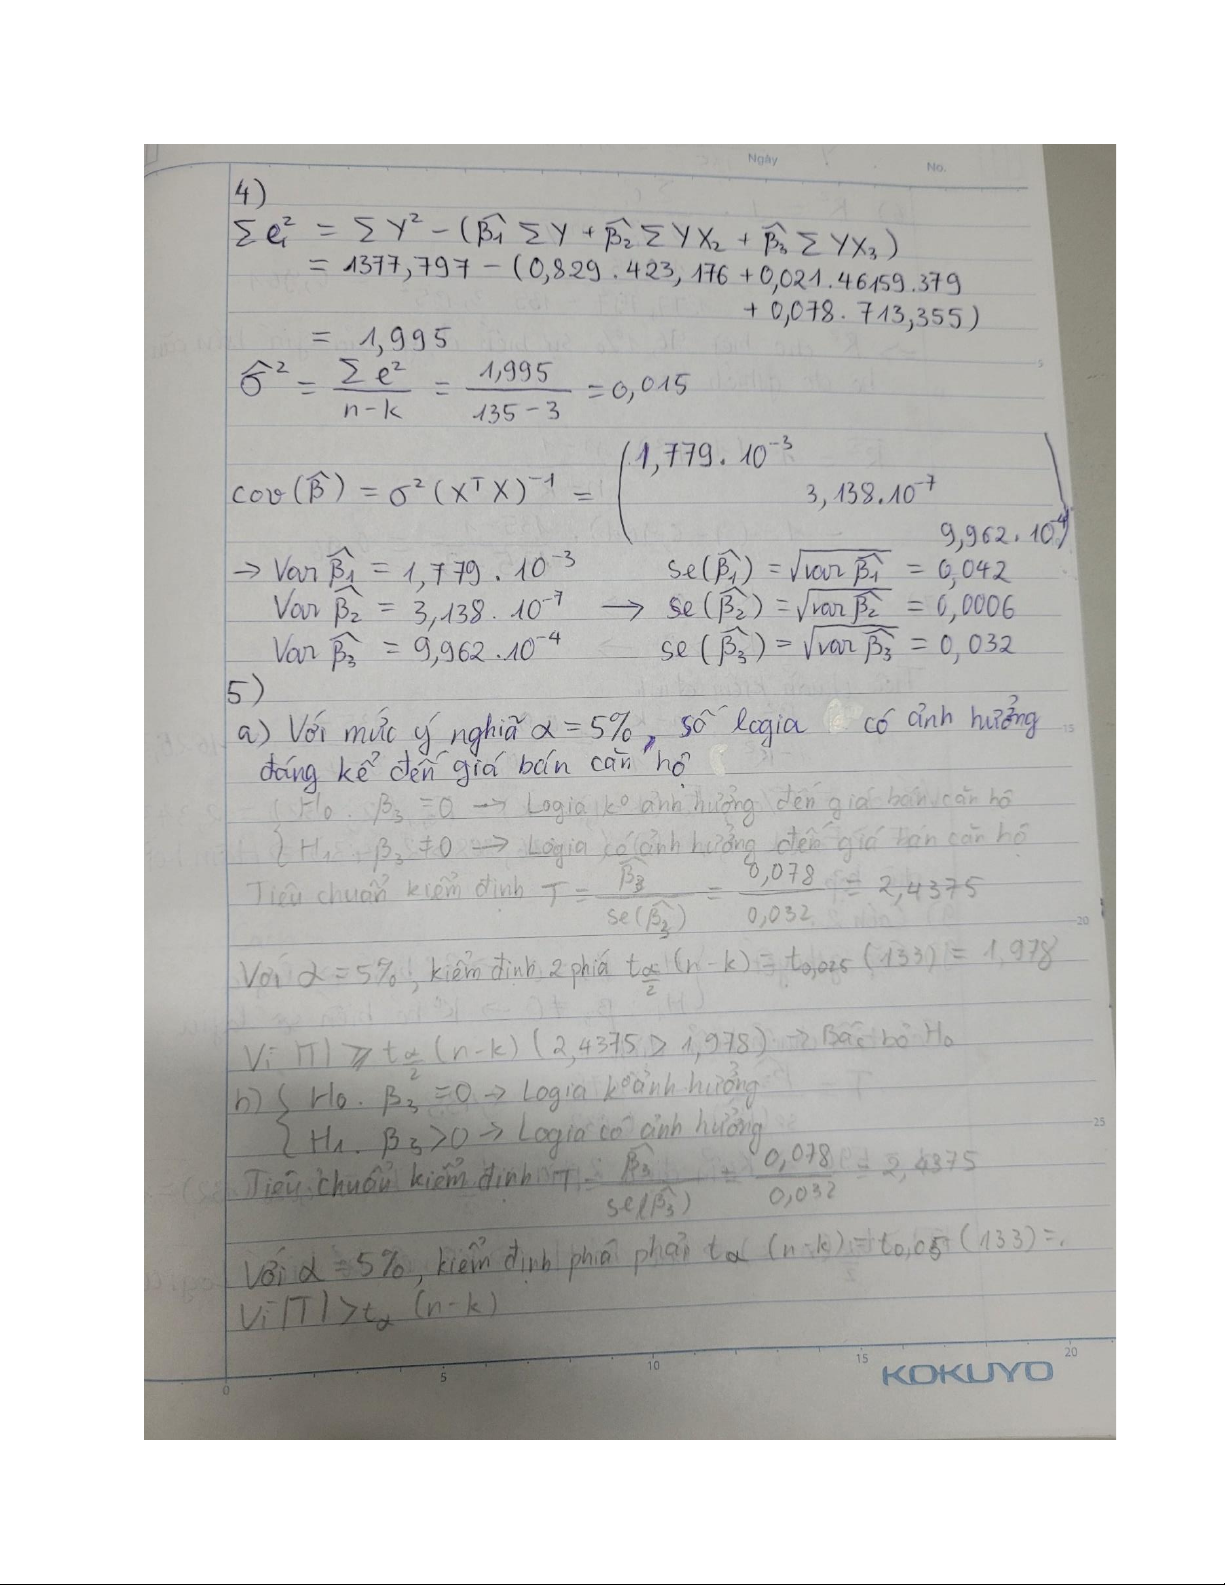 Ngày No.
4)
Σe₁² = ΣY² − (β̂₁ ΣY + β̂₂ ΣYX₂ + β̂₃ ΣYX₃)
= 1377,797 − (0,829 . 423,176 + 0,021 . 46159.379
+ 0,078 . 713,355)
= 1,995
σ̂² = Σe² / (n−k) = 1,995 / (135−3) = 0,015
cov(β̂) = σ²(XᵀX)⁻¹ = ( 1,779.10⁻³
3,138.10⁻⁷
9,962.10⁻⁴ )
→ Var β̂₁ = 1,779.10⁻³ se(β̂₁) = √var β̂₁ = 0,042
Var β̂₂ = 3,138.10⁻⁷ → se(β̂₂) = √var β̂₂ = 0,0006
Var β̂₃ = 9,962.10⁻⁴ se(β̂₃) = √var β̂₃ = 0,032
5)
a) Với mức ý nghiã α = 5%, số logia có ảnh hưởng
đáng kể đến giá bán căn hộ
{ H₀ . β₃ = 0 → Logia kº ảnh hưởng đến giá bán căn hộ
{ H₁ . β₃ ≠ 0 → Logia có ảnh hưởng đến giá bán căn hộ
Tiêu chuẩn kiểm định T = β̂₃ / se(β̂₃) = 0,078 / 0,032 = 2,4375
Với α = 5%, kiểm định 2 phía t_α/2 (n−k) = t₀,₀₂₅ (133) = 1,978
Vì |T| ⩾ t_α/2 (n−k) (2,4375 > 1,978) → Bác bỏ H₀
b) { H₀ . β₃ = 0 → Logia kº ảnh hưởng
{ H₁ . β₃ > 0 → Logia có ảnh hưởng
Tiêu chuẩn kiểm định T = β̂₃ / se(β̂₃) = 0,078 / 0,032 = 2,4375
Với α = 5%, kiểm định phía phải t_α (n−k) = t₀,₀₅ (133) = .
Vì |T| > t_α (n−k)
KOKUYO
0 5 10 15 20
5
15
20
25